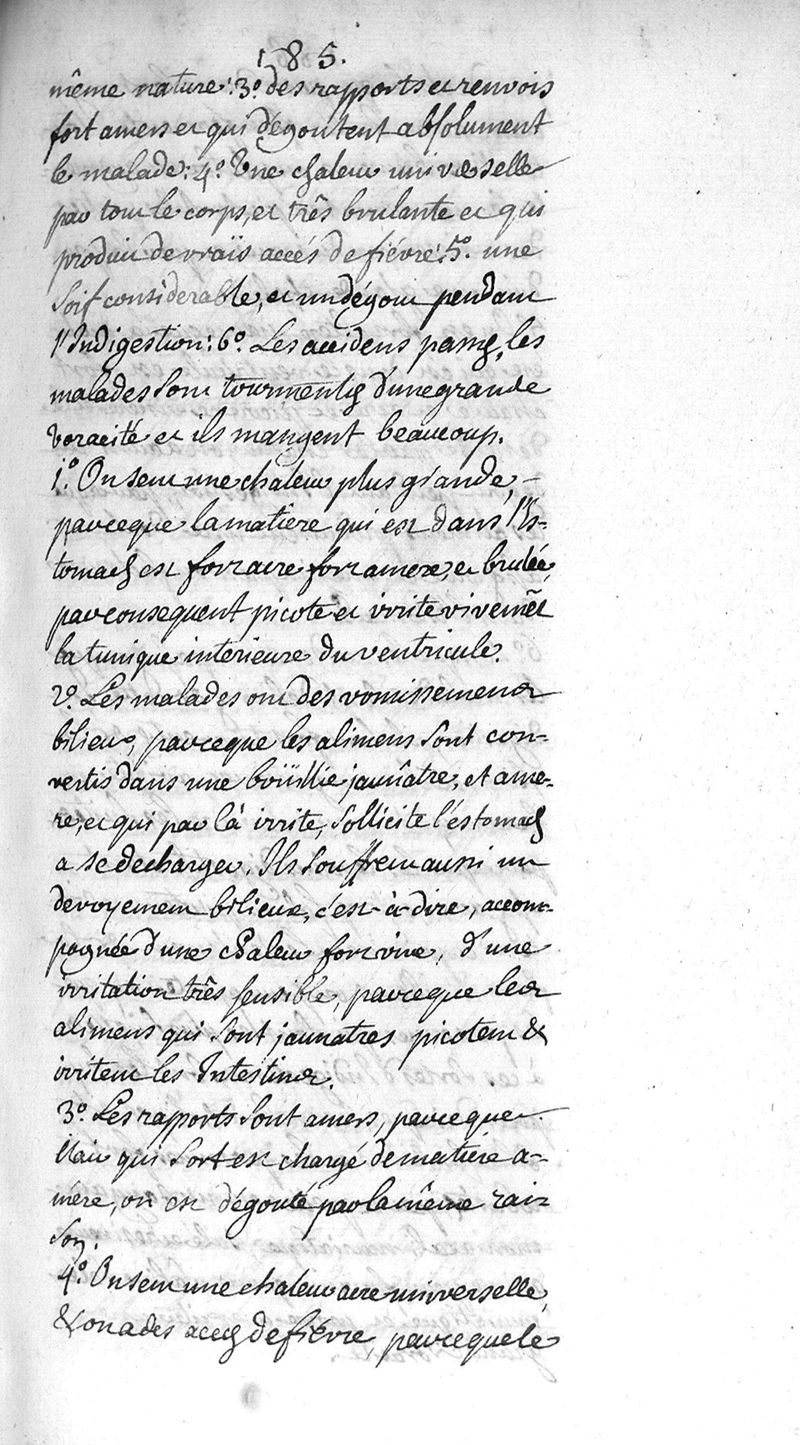 185.
même nature: 3.º des rapports et renvois
fort amers et qui dégoutent absolument
le malade: 4.º Une chaleur universelle
par tout le corps, et três brulante et qui
produit de vraïs accés de fiévre: 5.º une
soif considerable, et un dégout pendant
l'Indigestion: 6.º Les accidens passés, les
malades sont tourmentés d'une grande
voracité et ils mangent beaucoup.
1.º On sent une chaleur plus grande,
parceque la matiere qui est dans l'Es-
tomach est fort acre fort amere, et brulée,
par consequent picote et irrite vivemẽt
la tunique interieure du ventricule.
2.º Les malades ont des vomissements
bilieux, parceque les alimens sont con-
vertis dans une boüillie jaunâtre, et ame-
re, et qui par là irrite, sollicite l'estomach
a se decharger. Ils souffrent aussi un
devoyement bilieux, c'est-à-dire, accom-
pagnée d'une chaleur fort vive, d'une
irritation três sensible, parceque les
alimens qui sont jaunatres picotent &
irritent les Intestins.
3.º Les rapports sont amers, parceque
l'air qui sort est chargé de matiére a-
mére, on est dégouté par la même rai-
son.
4.º On sent une chaleur acre universelle,
& on a des accés de fiévre, parceque le